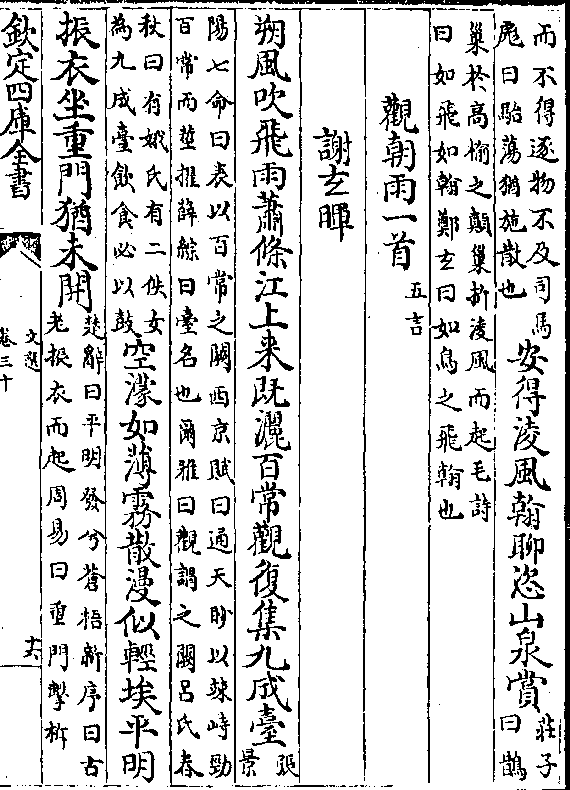 而不得逐物不及司馬
彪曰駘蕩猶施散也
安得凌風翰聊恣山泉賞
莊子
曰鵲
巢於高榆之顛巢折凌風而起毛詩
曰如飛如翰鄭玄曰如鳥之飛翰也
觀朝雨一首
五言
謝玄暉
朔風吹飛雨蕭條江上来既灑百常觀復集九成臺
張
景
陽七命曰表以百常之闕西京賦曰通天眇以竦峙勁
百常而莖擢薛綜曰臺名也爾雅曰觀謂之闕吕氏春
秋曰有娀氏有二佚女
為九成臺飲食必以鼓
空濛如薄霧散漫似輕埃平明
振衣坐重門猶未開
楚辭曰平明發兮蒼梧新序曰古
老振衣而起周易曰重門擊柝
欽定四庫全書
文選
卷三十
十六